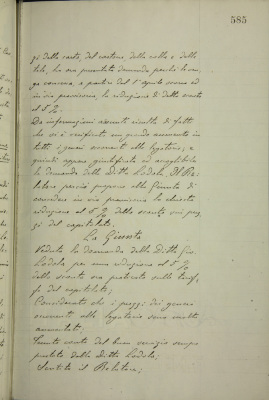 585
gi della carta, del cartone, della colla e della
tela, ha ora presentata domanda perché le ven-
ga concessa a partire dal 1° agosto scorso ed
in via provvisoria, la riduzione di detto sconto
al 5 %.
Da informazioni assunte risulta di fatto
che si è verificato un grande aumento in
tutti i generi occorrenti alla legatoria, e
quindi appare giustificata ed accoglibile
la domanda della Ditta Lodola. Il Re-
latore perciò propone alla Giunta di
concedere in via provvisoria la chiesta
riduzione al 5 % dello sconto sui prez-
zi del capitolato;
La Giunta
Veduta la domanda della Ditta
Lodola per una riduzione al 5 %
dello sconto ora praticato sulle tarif-
fe del capitolato;
Considerato che i prezzi dei generi
occorrenti alla legatoria sono molto
aumentati;
Tenuto conto del buon servizio sempre
prestato dalla Ditta Lodola;
Sentito il Relatore;